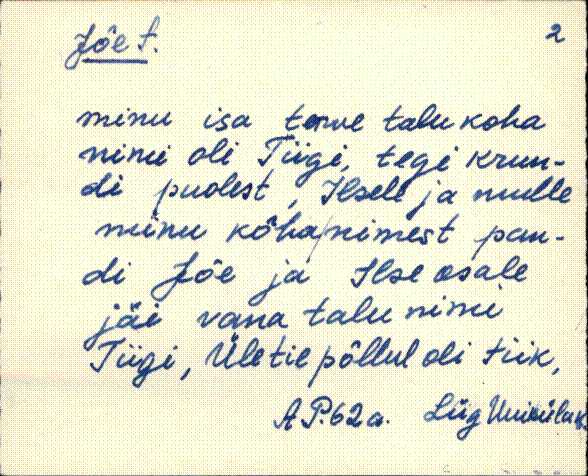 Jõe t. 2
minu isa terve talu koha
nimi oli Tiigi, tegi krun-
di puolest, Ilsele ja mulle
minu kõhanimest pan-
di Jõe ja Ilse osale
jäi vana talu nimi
Tiigi,Ületie põllul oli tiik,
A.P. 62 a. Liig